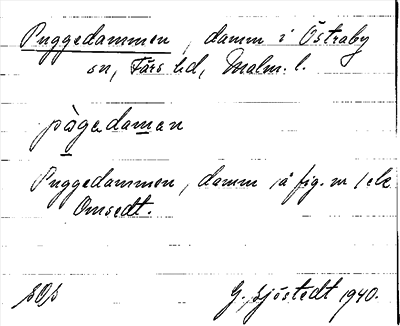 Puggedammen, damm i Östraby
sn, Färs hd, Malm. l.
pàgedaman
Puggedammen, damm å fig. nr 1 ek
Omsedt.
G. Sjöstedt 1940.